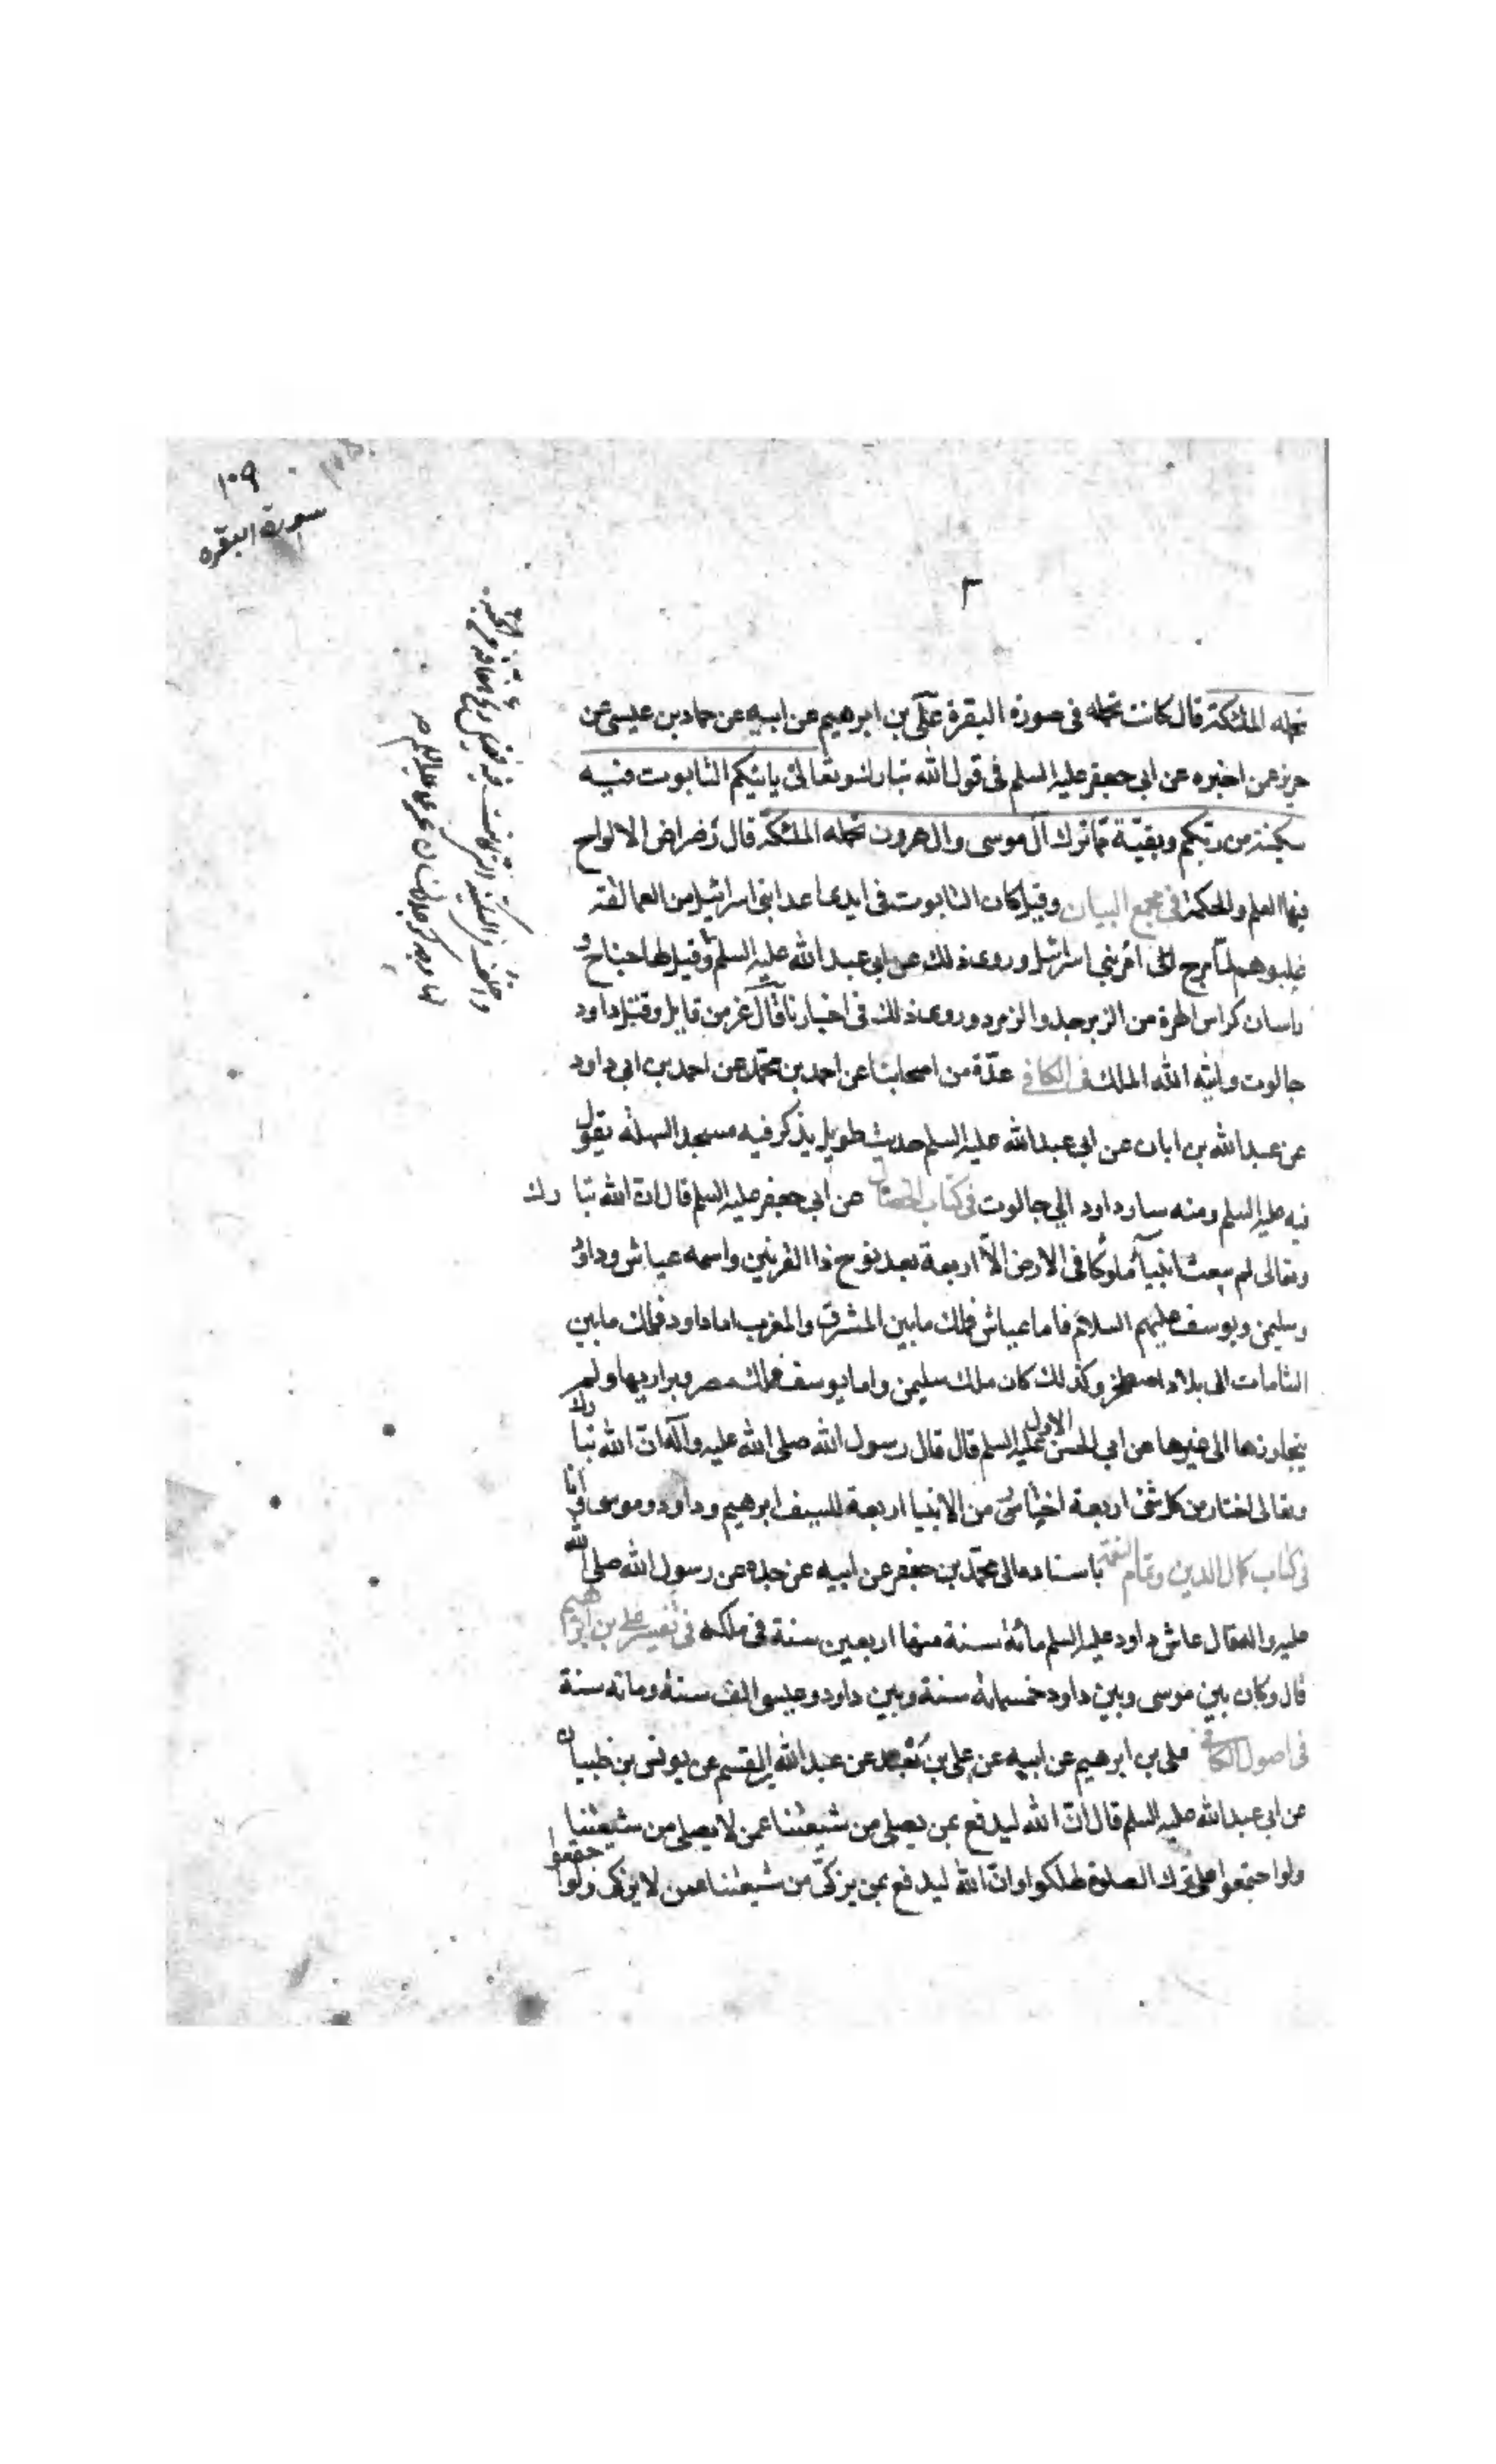 ١٠٩
سورة البقره
٣
تحمله الملئكة قال كانت تحمله فى صورة البقرة على بن ابرهيم عن ابيه عن حماد بن عيسى عن
حريز عمن اخبره عن ابى جعفر عليه السلم فى قول الله تبارك وتعالى ياتيكم التابوت فيه
سكينة من ربكم وبقية مما ترك آل موسى وال هرون تحمله الملئكة قال رضراض الالواح
فيها العلم والحكمة فى مجمع البيان وقيل كان التابوت فى ايدى اعدا بنى اسرائيل من العمالقة
غلبوهم لما مرج امر بنى اسرائيل وروى ذلك عن ابى عبد الله عليه السلم وقيل لها جناحان و
راسان كراس الهرة من الزبرجد والزمرد وروى ذلك فى اخبارنا قال عز من قايل وقتل داود
جالوت واتيه الله الملك فى الكافى عدة من اصحابنا عن احمد بن محمد عن احمد بن ابى داود
عن عبد الله بن ابان عن ابى عبد الله عليه السلم حديث طويل يذكر فيه مسجد السهلة يقول
فيه عليه السلم ومنه سار داود الى جالوت فى كتاب الخصال عن ابى جعفر عليه السلم قال ان الله تبا رك
وتعالى لم يبعث انبيآء ملوكا فى الارض الا اربعة بعد نوح ذا القرنين واسمه عياش وداود
وسليمن ويوسف عليهم السلام فاما عياش فملك ما بين المشرق والمغرب اما داود فملك ما بين
الشامات الى بلاد اصطخر وكذلك كان ملك سليمن واما يوسف فملك مصر وبراريها ولم
يتجاوزها الى غيرها عن ابى الحسن الاول عليه السلم قال قال رسول الله صلى الله عليه وآله ان الله تبارك
وتعالى اختار من كل شئ اربعة اختار من الانبيا اربعة للسيف ابرهيم وداود وموسى وانا
فى كتاب كمال الدين وتمام النعمة باسناده الى محمد بن جعفر عن ابيه عن جده عن رسول الله صلى الله
عليه واله قال عاش داود عليه السلم مائة سنة منها اربعين سنة فى ملكه فى تفسير على بن ابرهيم
قال وكان بين موسى وبين داود خمسمائة سنة وبين داود وعيسى الف سنة ومائه سنة
فى اصول الكافى على بن ابرهيم عن ابيه عن على بن معبد عن عبد الله بن القسم عن يونس بن ظبيان
عن ابى عبد الله عليه السلم قال ان الله ليدفع بمن يصلى من شيعتنا عمن لا يصلى من شيعتنا
ولو اجتمعوا على ترك الصلوة لهلكوا وان الله ليدفع بمن يزكى من شيعتنا عمن لا يزكى ولو